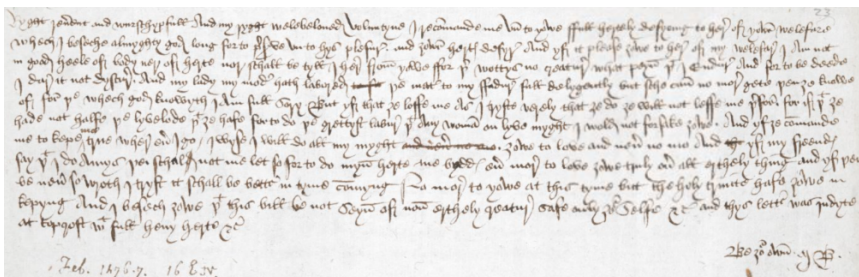 Ryght reverent and wurschypfull and my ryght welebeloved Voluntyne I recomande me vn to yowe full hertely desyring to here of yowr welefare
whech I beseche almyghty god long for to preserve vn to hys plesure and yowr hertes desyre And yf it please yowe to here of my welefare I am not
in good heele of body ner of herte nor schall be tyll I here from yowe ffor þer wottys no creature what peyn þat I endure And for to be deede
I dure it not dyscure And my lady my moder hath labored þe mater to my ffadure full delygently but sche can no more gete þen ze knowe
of for þe whech god knowyth I am full sory But yf that ze loffe me as I tryste verely that ze do ze will not leffe me þerfor for if þat ze
hade not halfe þe lyvelode þat ze hafe for to do þe grettyst labure þat any woman on lyve myght I wold not forsake yowe And yf ze comande
me to kepe me true wherever I go I wyse I will do all my myght zowe to love and never no mo And yf my freends
say þat I do amys þei schal not me let so for to do myn herte me bydds ever more to love zowe truly over all erthely thing and yf þei
be never so wroth I tryst it schall be better in tyme comyng No more to yowe at this tyme but the holy trinite hafe zowe in
kepyng And I besech zowe þat this bill be not seyn of non erthely creature safe only zour selfe &c and thys letter was indyte
at topcroft with full hevy herte &c
Be zour own M B
Feb. 1476-7. 16 E.
23